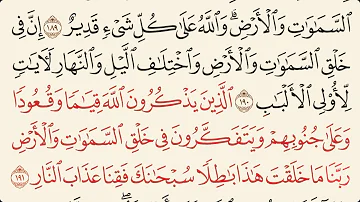 ٱلسَّمَٰوَٰتِ وَٱلْأَرْضِۗ وَٱللَّهُ عَلَىٰ كُلِّ شَىْءٍ قَدِيرٌ ١٨٩ إِنَّ فِى
خَلْقِ ٱلسَّمَٰوَٰتِ وَٱلْأَرْضِ وَٱخْتِلَٰفِ ٱلَّيْلِ وَٱلنَّهَارِ لَءَايَٰتٍ
لِّأُو۟لِى ٱلْأَلْبَٰبِ ١٩٠ ٱلَّذِينَ يَذْكُرُونَ ٱللَّهَ قِيَٰمًا وَقُعُودًا
وَعَلَىٰ جُنُوبِهِمْ وَيَتَفَكَّرُونَ فِى خَلْقِ ٱلسَّمَٰوَٰتِ وَٱلْأَرْضِ
رَبَّنَا مَا خَلَقْتَ هَٰذَا بَٰطِلًا سُبْحَٰنَكَ فَقِنَا عَذَابَ ٱلنَّارِ ١٩١